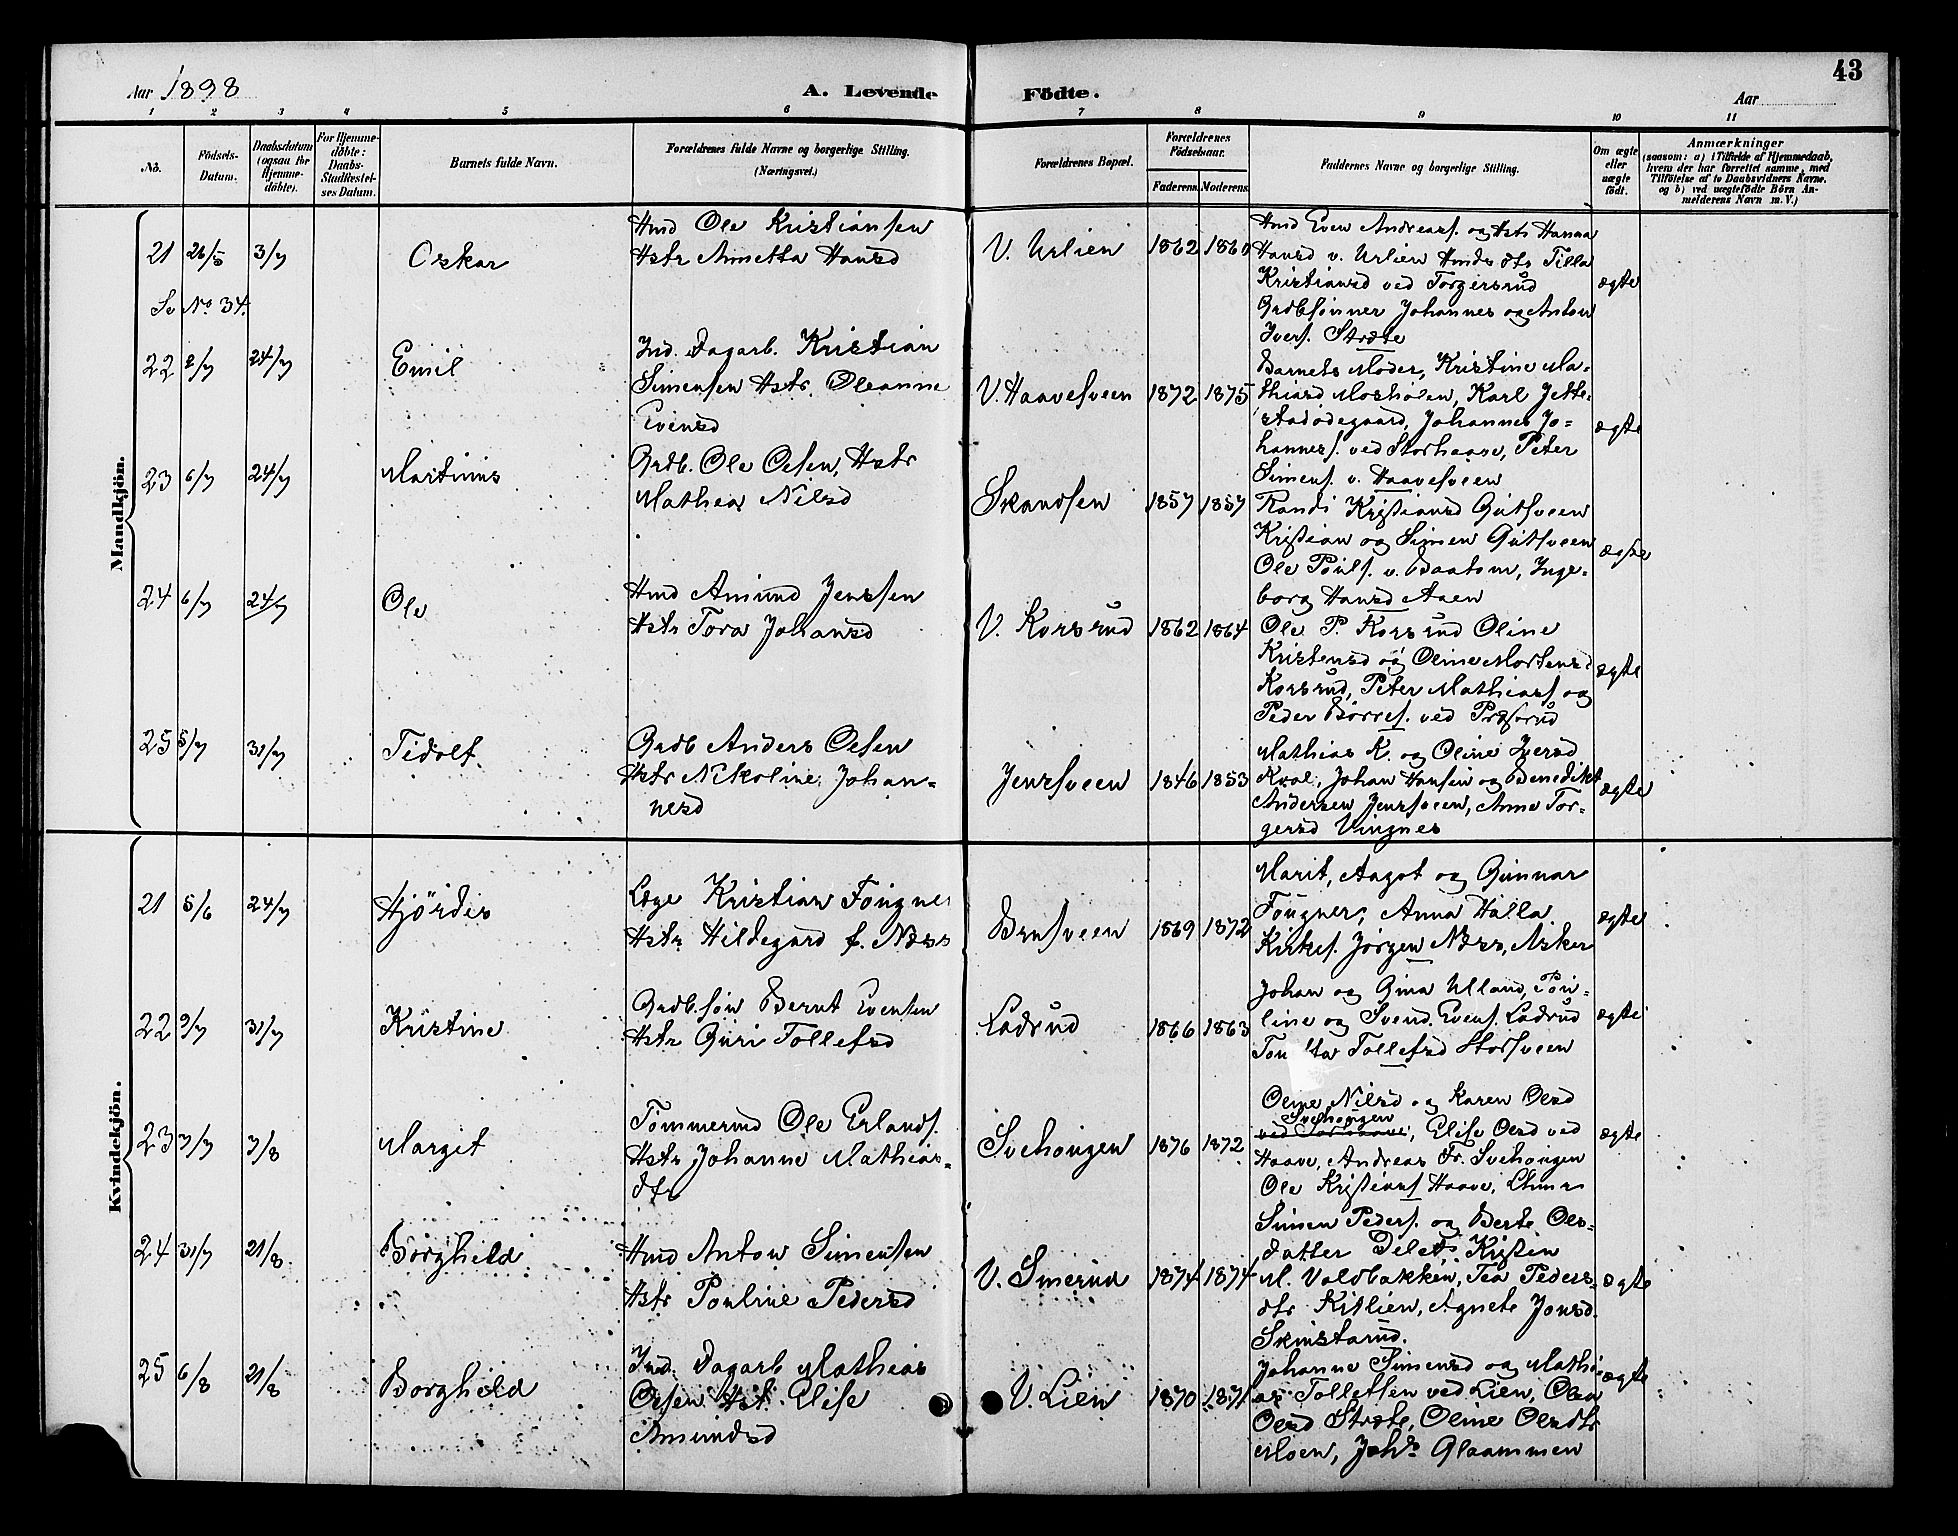 43
Aar 1898 A. Levende Födte. Aar
1 2 3 4 5 6 7 8 9 10 11
No.
Födsels-
Datum.
Daabsdatum
(ogsaa for
Hjemme-
döbte).
For Hjemme-
döbte:
Daabs-
Stadfæstel-
ses Datum.
Barnets fulde Navn.
Forældrenes fulde Navne og borgerlige Stilling.
(Næringsvei.)
Forældrenes Bopæl.
Forældrenes
Födselsaar.
Faderens. Moderens.
Faddernes Navne og borgerlige Stilling.
Om ægte
eller
uægte
födt.
Anmærkninger
(saasom: a) i Tilfælde af Hjemmedaab,
hvem der har forrettet samme, med
Tilföielse af to Daabsvidners Navne,
og b) ved uægtefödte Börn An-
melderens Navn m. V.)
Mandkjön.
21 26/5 3/7 Oskar
Hmd Ole Kristiansen
Hstr Annetta Hansd
V. Urlien 1862
Hmd Even Andreass. og Hstr Hanna
Hansd v. Urlien Hmds dtr Tilla
Kristiansd ved Torgersrud
Grdbsönner Johannes og Anton
Ivers. Stræte
ægte
Se No 34.
22 2/7 24/7 Emil
Ind. Dagarb. Kristian
Simensen Hstr. Oleanne
Evensd
V. Haavesveen 1872 1875
Barnets Moder, Kristine Ma-
thiasd Moshölen, Karl Jette-
stadödegaard, Johannes Jo-
hanness. ved Storhaave, Peter
Simens. v. Haavesveen
ægte
23 6/7 24/7 Martinus
Grdb. Ole Olsen, Hstr
Mathea Nilsd
Skandsen 1857 1857
Randi Kristiansd Gutsveen
Kristian og Simen Gutsveen
Ole Pouls. v. Baatom, Inge-
borg Hansd Aaen
ægte
24 6/7 24/7 Ole
Hmd Amund Jenssen
Hstr Tora Johansd
V. Korsrud 1862 1864
Ole P. Korsrud Oline
Kristensd og Oline Mortensd
Korsrud, Peter Mathiass og
Peder Börres. ved Præsrud
ægte
25 5/7 31/7 Tidolf.
Grdb Anders Olsen
Hstr Nikoline Johan-
nesd
Jensveen 1846 1853
Mathias K. og Oline Iversd
Kval, Johan Hansen og Benedikt
Andersen Jensveen, Anne Tor-
gersd Vingnes
ægte
Kvindekjön.
21 5/6 24/7 Hjördis
Læge Kristian Fougner
Hstr Hildegard f. Næss
Brusveen 1869 1872
Marit, Aagot og Gunnar
Fougner, Anna Halla
Kirkes. Jörgen Næss, Asker
ægte
22 9/7 31/7 Kristine
Grdbsön Bernt Evensen
Hstr Guri Tollefsd
Ladrud 1866 1863
Johan og Gina Ulland, Pou-
line og Svend Evens. Ladrud
Tollefsd Storsveen
ægte
23 3/7 3/8 Margit
Tommermd Ole Erlands.
Hstr Johanne Mathias-
dtr
Svehougen 1876 1872
Oline Nilsd og Karen Olsd
Svehougen
ved Storhaave, Elise Olsd ved
Haave, Andreas Fr. Svehougen
Ole Kristians Haave,
ægte
24 31/7 21/8 Borghild
Hmd Anton Simensen
Hstr Pouline Pedersd
V. Smerud 1874 1874
Simen Peders. og Berte Ols-
datter Kristin
M. Voldbakken, Tea Peders-
dtr Kitlien, Agnete Jonsd
Skinstarud.
ægte
25 6/8 21/8 Borghild
Ind. Dagarb Mathias
Olsen Hst. Elise
Amundsd
V. Lien 1870 1871
Johanne Simensd og Mathi-
as Tollefsen ved Lien, Olea
Olsd Stræte, Oline Olsdtr
Moen, Johs Glaammen
ægte